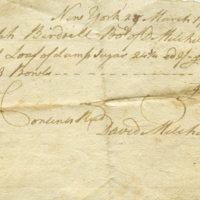 New York 27 March 1
Birdsell Bot of D Melch
Loaf of Lump Sugar 24lb
Bowls
Contents Recd
David Melch